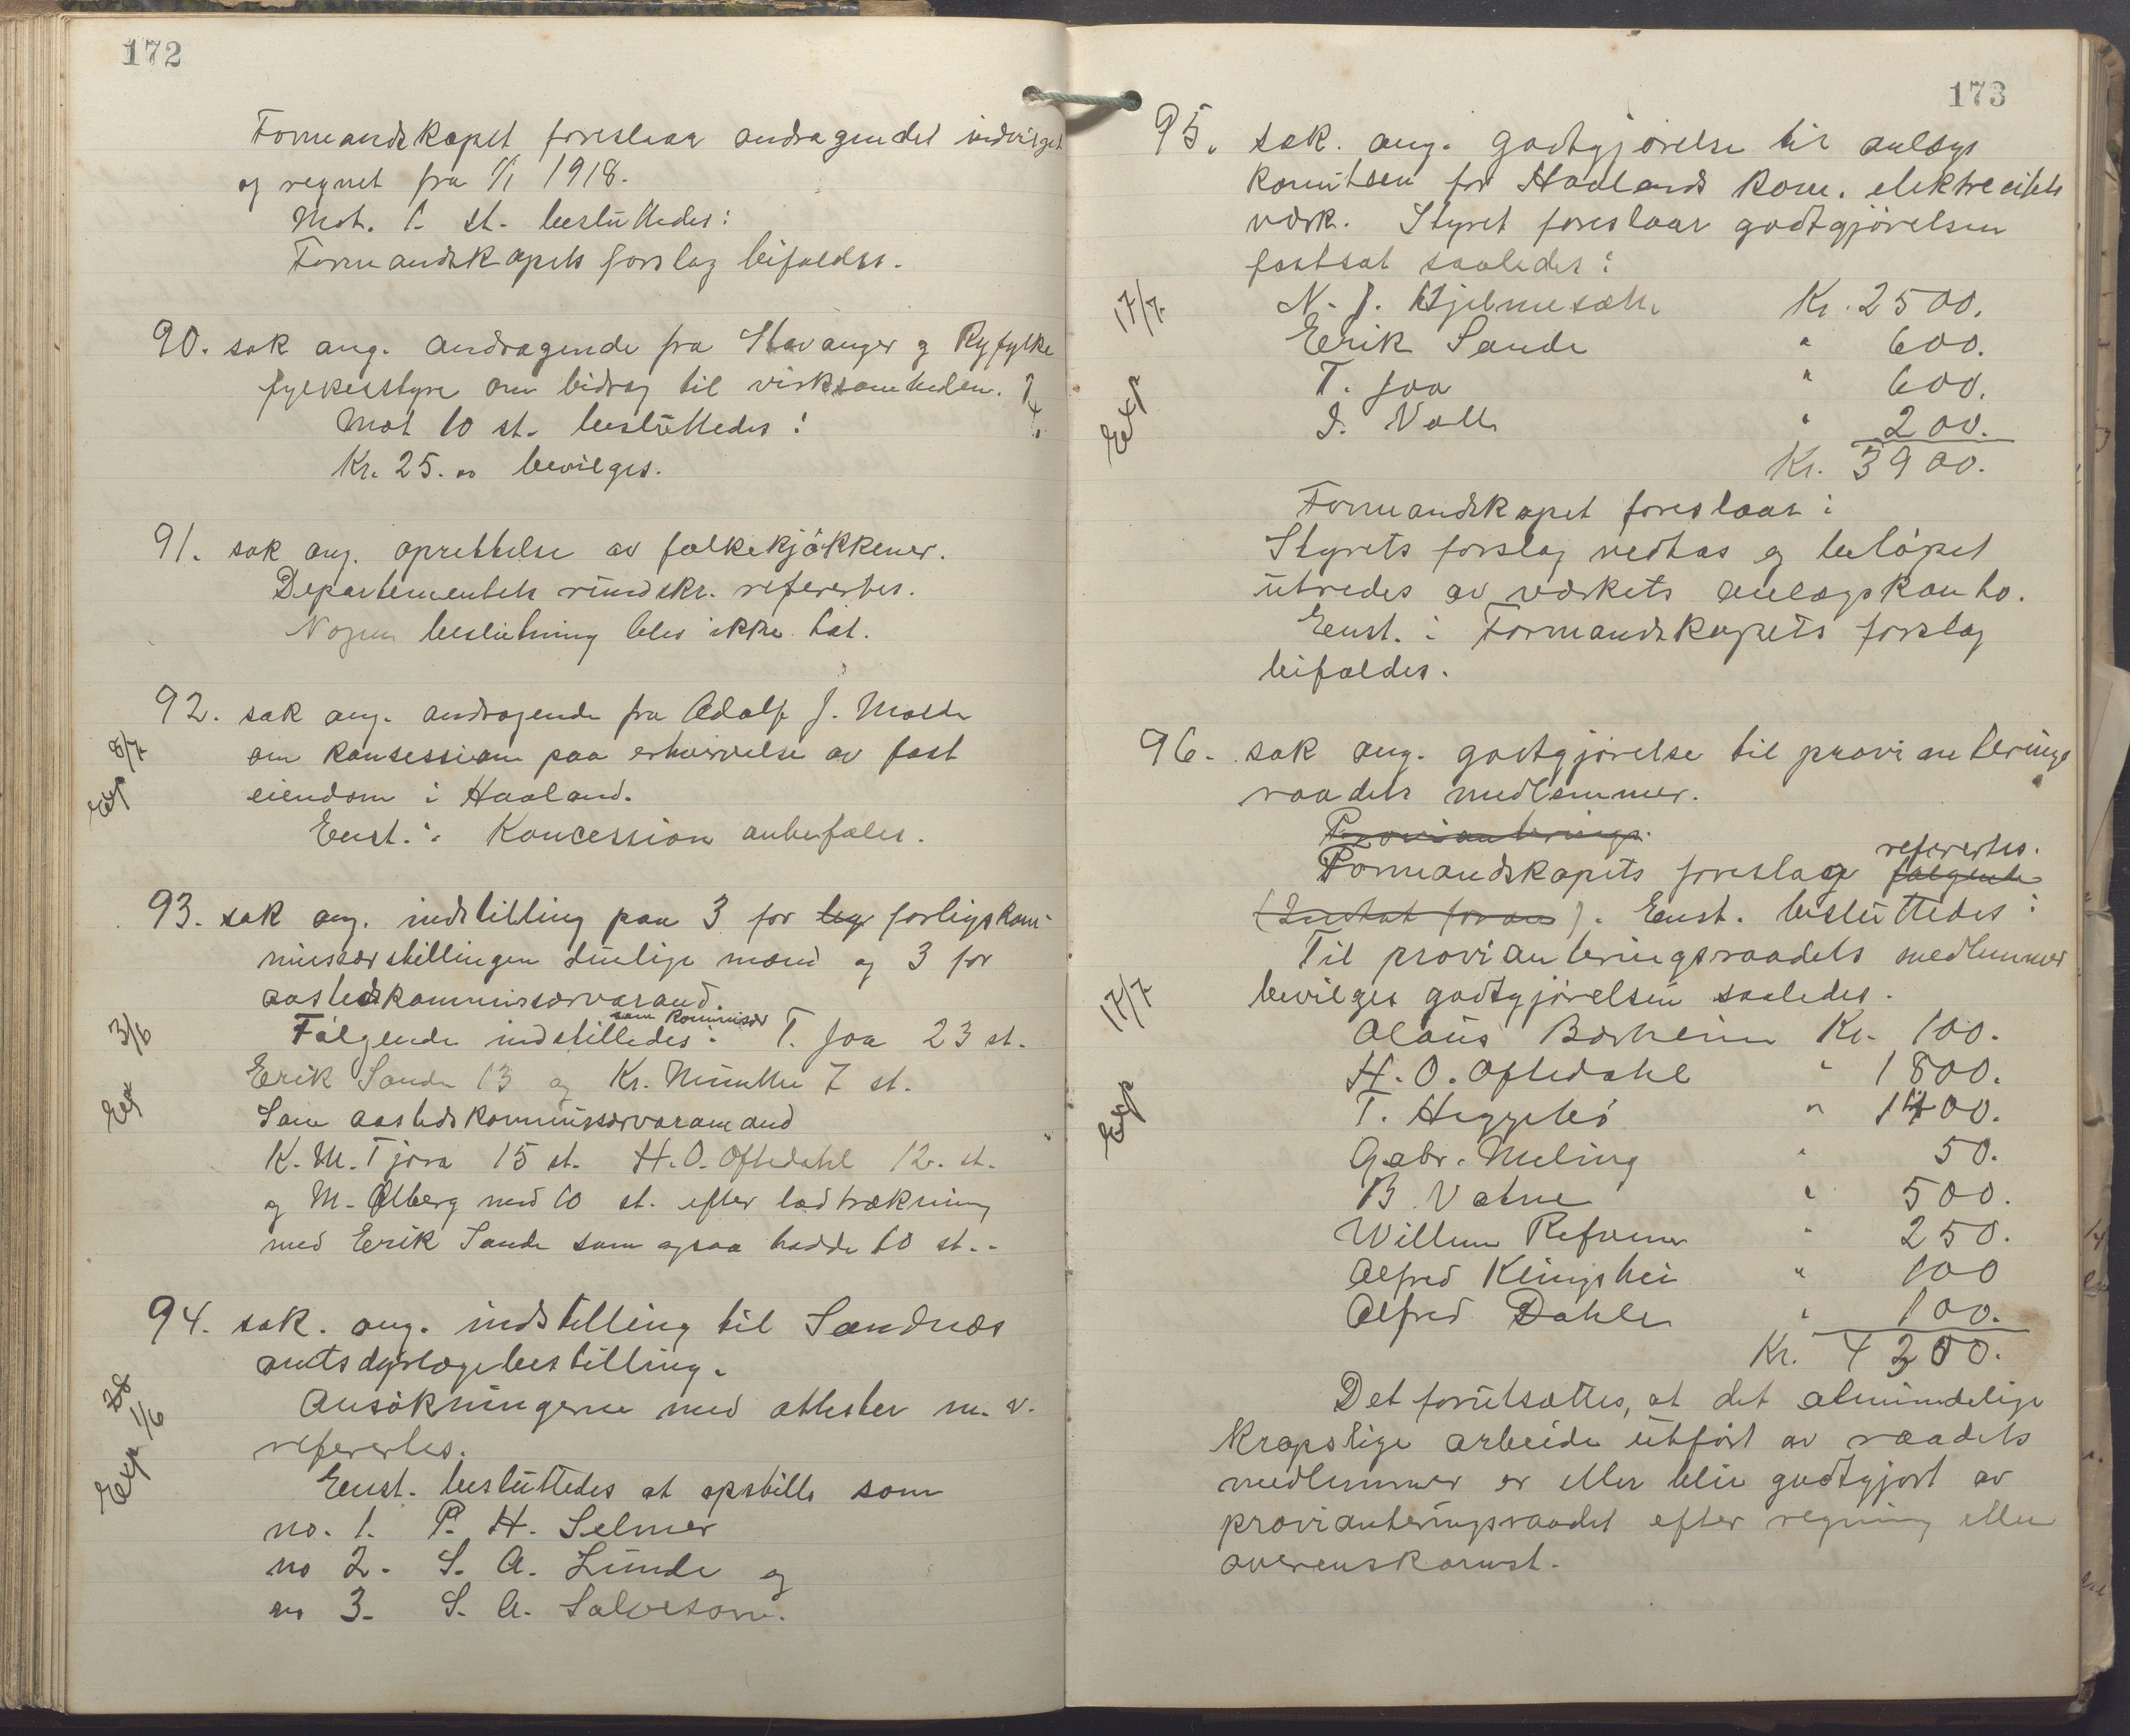 172
Formandskapet foreslaar andragendet indvilget
og regnet fra 1/1 1918.
Mot. 1 st. besluttedes:
Formandskapets forslag bifaldes.
90. sak ang. andragende fra Stavanger og Ryfylke
fylkesstyre om bidrag til virksomheden.
Mot 10 st. besluttedes:
Kr. 25.00 bevilges.
91. sak ang. oprettelse av folkekjøkkener.
Departementets rundskr. refereртes.
Nogen beslutning blev ikke tat.
92. sak ang. andragende fra Adolf J. Molde
om konsession paa erhvervelse av fast
8/7 Exp
eiendom i Haaland.
Enst.: Koncession anbefales.
93. sak ang. indstilling paa 3 for leg forligskom-
missærstillingen duelige mænd og 3 for
aastedskommissærvarand.
3/6 Exp
Følgende indstilledes som kommisær: T. Joa 23 st.
Erik Sande 13 og Kr. Munthe 7 st.
Som aastedskommissærvaramand
K. M. Tjora 15 st. H. O. Oftedahl 12. st.
og M. Ølberg med 10 st. efter lodtrækning
med Erik Sande som ogsaa hadde 10 st..
94. sak. ang. indstilling til Sandnes
amtsdyrlægebestilling.
28 1/6 Exp
Ansøkningerne med attester m. v.
refererтes.
Enst. besluttedes at opstille som
no. 1. P. H. Selmer
no 2. S. A. Lunde og
no 3. S. A. Salvesom.
173
95. sak. ang. godtgjørelse til anlægs
komiteen for Haalands kom. elektrecitets
værk. Styret foreslaar godtgjørelsen
fastsat saaledes:
17/7 Exp
N. J. Hjelmesæth Kr. 2500.
Erik Sande " 600.
T. Joa " 600.
S. Volle " 200.
Kr. 3900.
Formandskapet foreslaar:
Styrets forslag vedtas og beløpet
utredes av værkets anlægskonto.
Enst.: Formandskapets forslag
bifaldes.
96. sak ang. godtgjørelse til provianterings
raadets medlemmer.
Provianterings.
Formandskapets foreslag følgende refererтes.
(Indtat foran). Enst. besluttedes:
Til provianteringsraadets medlemmer
bevilges godtgjørelsen saaledes.
17/7 Exp
Olaus Børheim Kr. 100.
H. O. Oftedahl " 1800.
T. Heggebø " 1400.
Gabr. Meling " 50.
B. Vatne " 500.
Willem Refvem " 250.
Alfred Klingshei " 100
Alfred Dahle " 100.
Kr. 4300.
Det forutsættes, at det almindelige
kropslige arbeide utført av raadets
medlemmer er eller blir godtgjort av
provianteringsraadet efter regning eller
overenskomst.